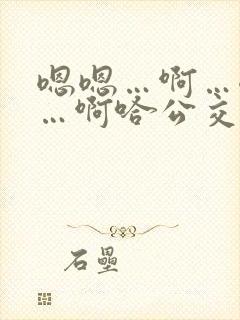 嗯嗯…啊…
…啊哈公交
石壘